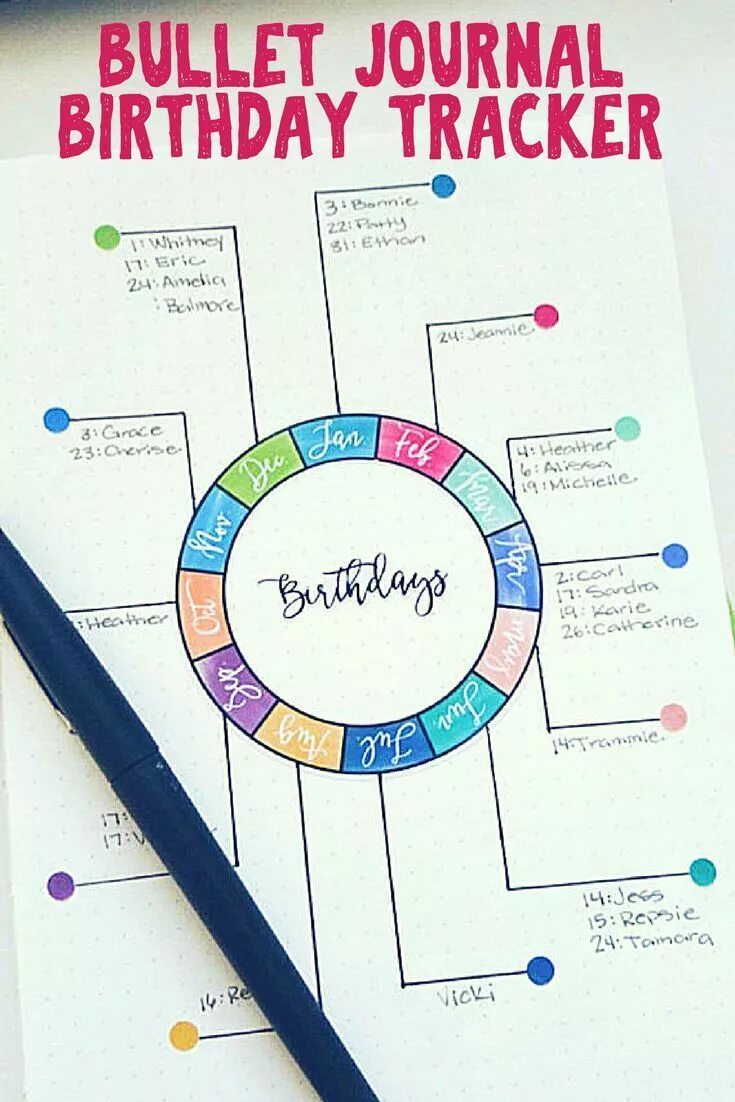 BULLET JOURNAL
BIRTHDAY TRACKER
3: Bonnie
22: Patty
31: Ethan
1: Whitney
17: Eric
24: Amelia
: Balmore
24: Jeannie
3: Grace
23: Cherise
4: Heather
6: Alissa
19: Michelle
Jan.
Feb.
Mar.
Apr.
May
Jun.
Jul.
Aug.
Sep.
Oct
Nov.
Dec.
Birthdays
2: Carl
17: Sandra
19: Karie
26: Catherine
: Heather
14: Trammie
17:
17: V
14: Jess
15: Repsie
24: Tamara
Vicki
16: Re